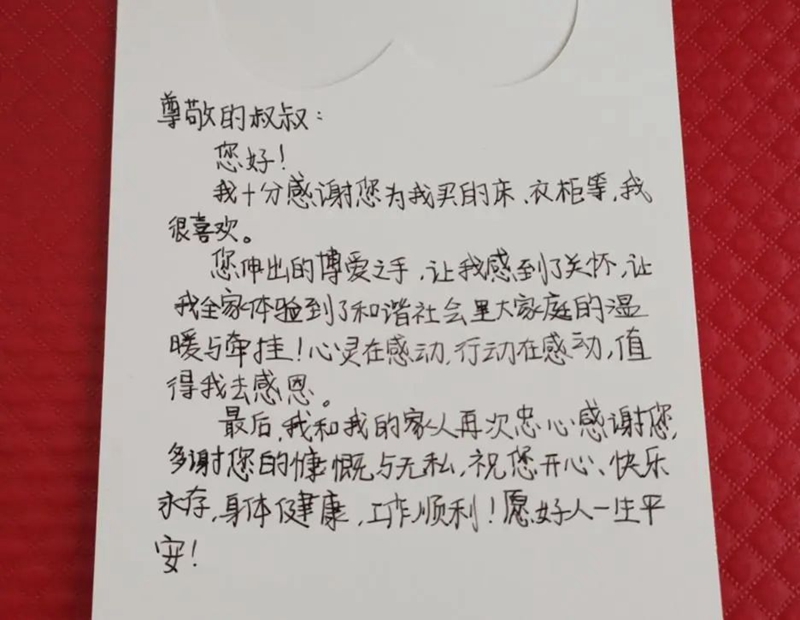 尊敬的叔叔：
您好！
我十分感谢您为我买的床、衣柜等，我
很喜欢。
您伸出的博爱之手，让我感到了关怀，让
我全家体验到了和谐社会里大家庭的温
暖与牵挂！心灵在感动，行动在感动，值
得我去感恩。
最后，我和我的家人再次忠心感谢您，
多谢您的慷慨与无私，祝您开心、快乐
永存，身体健康，工作顺利！愿好人一生平
安！